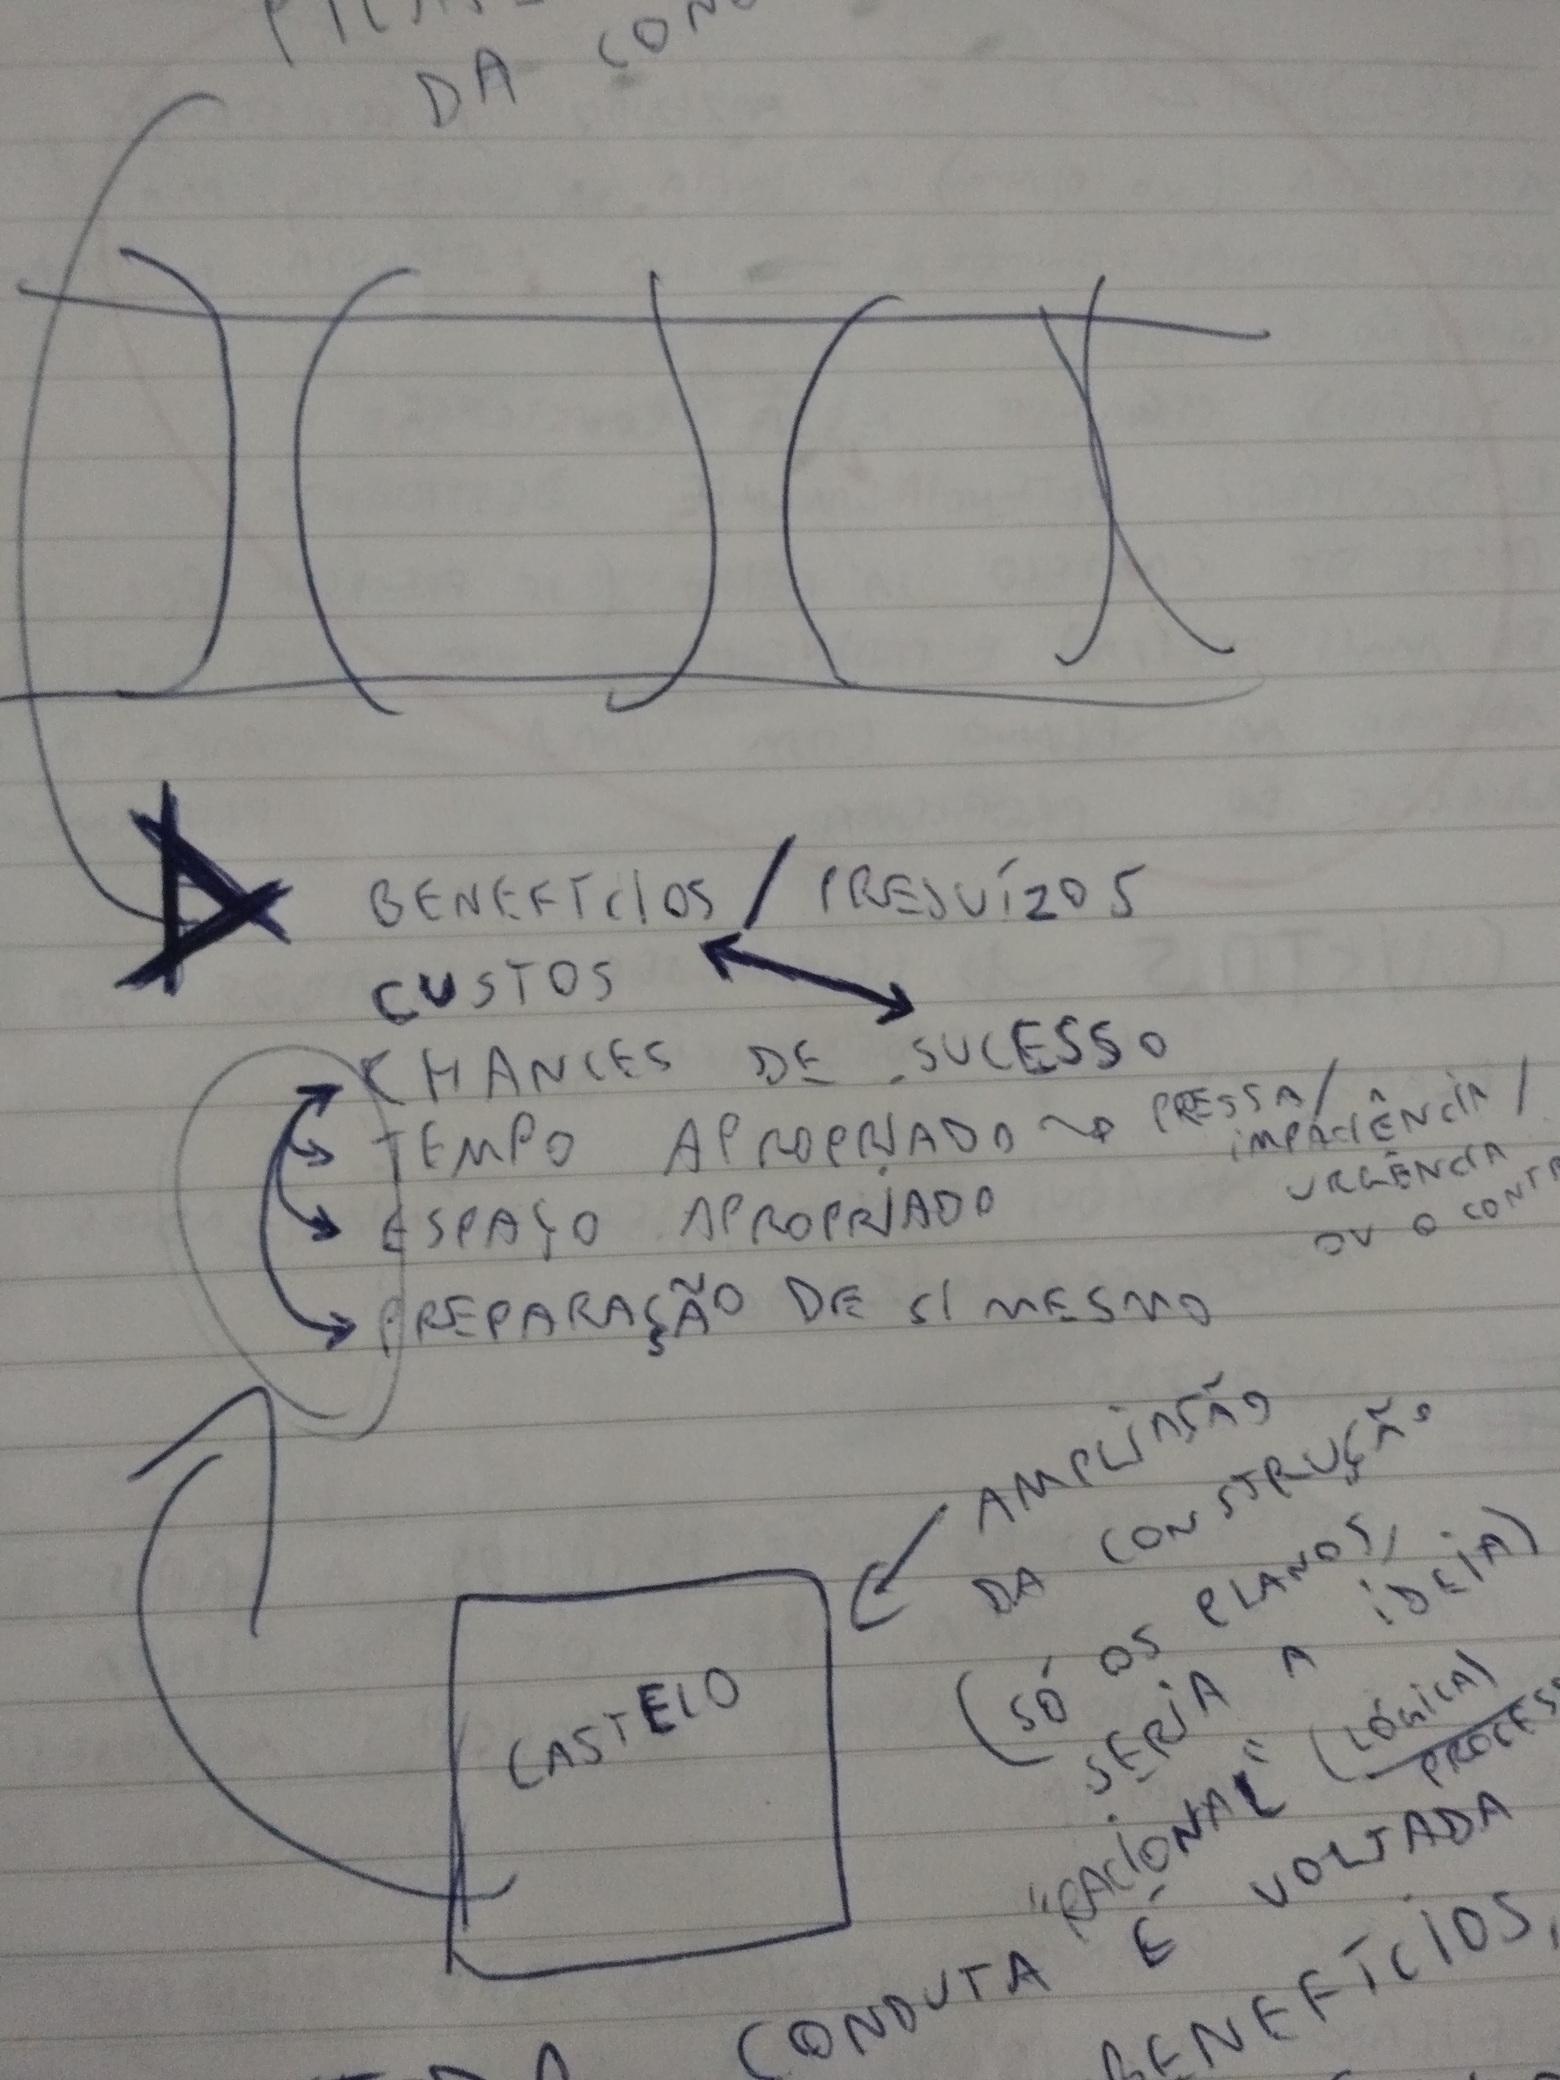 DA
BENEFÍCIOS / PREJUÍZOS
CUSTOS
CHANCES DE SUCESSO
TEMPO APROPRIADO → PRESSA/
IMPACIÊNCIA/
URGÊNCIA
OU O
ESPAÇO APROPRIADO
PREPARAÇÃO DE SI MESMO
AMPLIAÇÃO
DA CONSTRUÇÃO
(SÓ OS PLANOS,
SERIA A IDEIA)
CASTELO
"RACIONAL" (LÓGICA)
CONDUTA É VOLTADA
BENEFÍCIOS,